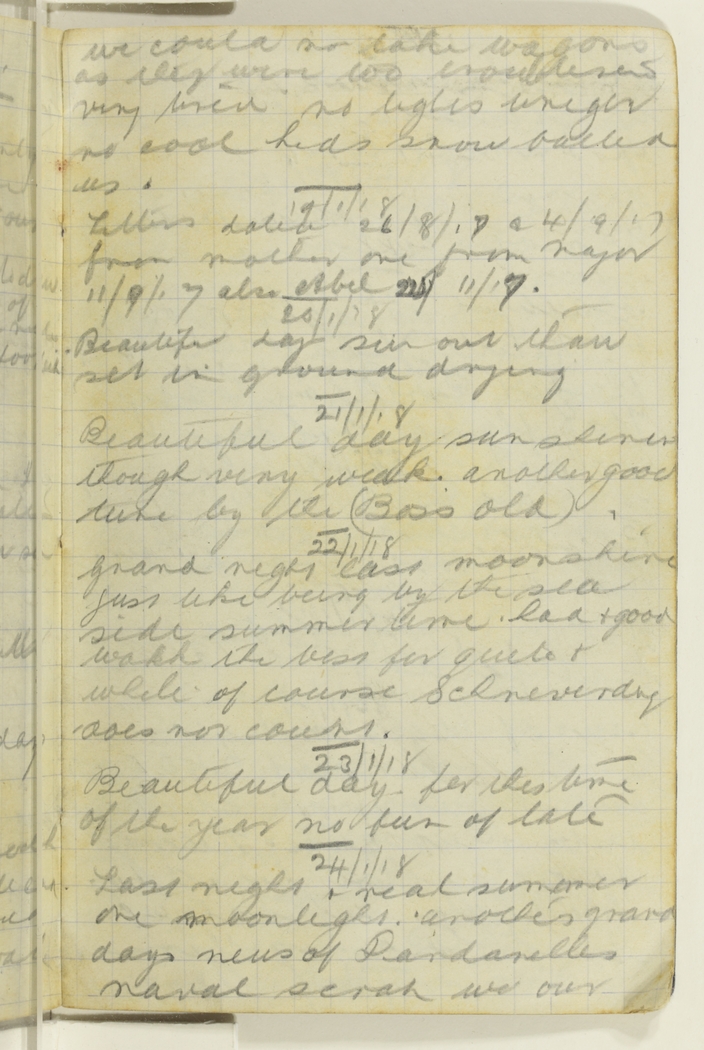 we could no take wagons
as they were too troublesome
very tired no lights
no coal kids snow balled
us.
19/1/18
Letters dated 26/8/17 & 4/9/17
from mother one from Major
11/9/17 also Abel 11/17.
20/1/18
Beautiful day sun out thaw
set in ground drying
21/1/18
Beautiful day sun shining
though very weak. another good
tune by the (Boss old)
22/1/18
grand night last moonshine
just like being by the sea
side summer time. had a good
walk the best for quite a
while of course Schneverding
does not count.
23/1/18
Beautiful day. for this time
of the year no fun of late
24/1/18
Last night a real summer
one moonlight. another grand
days news of Dardanelles
naval scrap we our